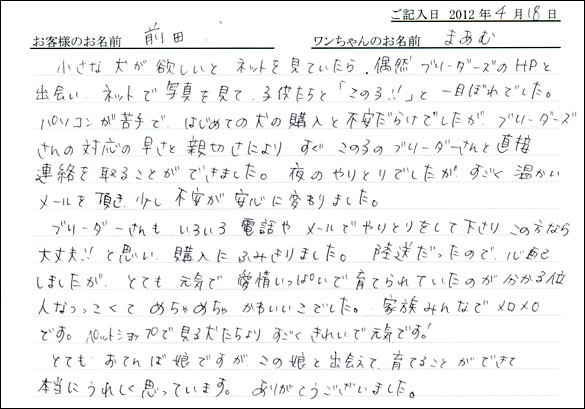 ご記入日 2012年4月18日
お客様のお名前 前田 ワンちゃんのお名前 まあむ
小さな犬が欲しいと ネットを見ていたら、偶然 ブリーダーズのHPと
出会い、ネットで写真を見て、子供たちと「この子!!」と 一目ぼれでした。
パソコンが苦手で、はじめての犬の購入と不安だらけでしたが、ブリーダーズ
さんの対応の早さと親切さにより すぐ この子のブリーダーさんと直接
連絡を取ることができました。夜のやりとりでしたが、すごく温かい
メールを頂き、少し不安が安心に変わりました。
ブリーダーさんも いろいろ 電話や メールでやりとりをして下さり この方なら
大丈夫!!と思い、購入にふみきりました。 陸送だったので、心配
しましたが、とても元気で 愛情いっぱいで育てられていたのが分かる位
人なつっこくて めちゃめちゃ かわいいこでした。 家族みんなで メロメロ
です。ペットショップで見る犬たちより すごく きれいで元気です!
とても おてんば娘ですが、この娘と出会えて、育てることができて
本当にうれしく思っています。 ありがとうございました。